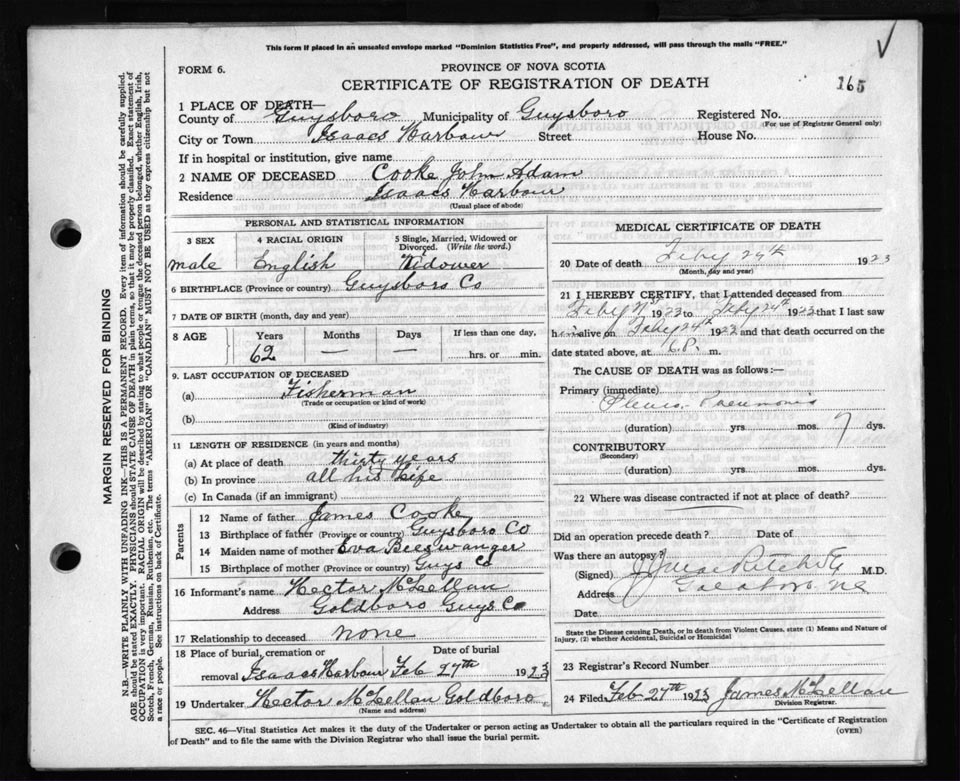 This form if placed in an unsealed envelope marked "Dominion Statistics Free", and properly addressed, will pass through the mails "FREE."
FORM 6.
PROVINCE OF NOVA SCOTIA
CERTIFICATE OF REGISTRATION OF DEATH
165
1 PLACE OF DEATH—
County of Guysboro Municipality of Guysboro Registered No.
(For use of Registrar General only)
City or Town Isaacs Harbour Street House No.
If in hospital or institution, give name
2 NAME OF DECEASED Cooke John Adam
Residence Isaacs Harbour
(Usual place of abode)
PERSONAL AND STATISTICAL INFORMATION
3 SEX 4 RACIAL ORIGIN 5 Single, Married, Widowed or Divorced. (Write the word.)
male English Widower
6 BIRTHPLACE (Province or country) Guysboro Co
7 DATE OF BIRTH (month, day and year)
8 AGE Years Months Days If less than one day,
62 — — hrs. or min.
9. LAST OCCUPATION OF DECEASED
(a) Fisherman
(Trade or occupation or kind of work)
(b)
(Kind of industry)
11 LENGTH OF RESIDENCE (in years and months)
(a) At place of death thirty years
(b) In province all his life
(c) In Canada (if an immigrant)
Parents
12 Name of father James Cooke
13 Birthplace of father (Province or country) Guysboro Co
14 Maiden name of mother Eva Beeswanger
15 Birthplace of mother (Province or country) Guys Co
16 Informant's name Hector McLellan
Address Goldboro Guys. Co
17 Relationship to deceased none
18 Place of burial, cremation or Date of burial
removal Isaacs Harbour Feb 27th 1923
19 Undertaker Hector McLellan Goldboro
(Name and address)
MEDICAL CERTIFICATE OF DEATH
20 Date of death Feby 24th 1923
(Month, day and year)
21 I HEREBY CERTIFY, that I attended deceased from
Feby 1923 to Feby 24th 1923 that I last saw
him alive on Feby 24th 1923 and that death occurred on the
date stated above, at 6 P. m.
The CAUSE OF DEATH was as follows:—
Primary (immediate)
Pleuro-Pneumonia
(duration) yrs. mos. 7 dys.
CONTRIBUTORY
(Secondary)
(duration) yrs. mos. dys.
22 Where was disease contracted if not at place of death?
Did an operation precede death? Date of
Was there an autopsy?
(Signed) M.D.
Address Goldboro NS
Date
State the Disease causing Death, or in death from Violent Causes, state (1) Means and Nature of
Injury, (2) whether Accidental, Suicidal or Homicidal
23 Registrar's Record Number
24 Filed Feb 27th 1923 James McLellan
Division Registrar.
SEC. 46—Vital Statistics Act makes it the duty of the Undertaker or person acting as Undertaker to obtain all the particulars required in the "Certificate of Registration
of Death" and to file the same with the Division Registrar who shall issue the burial permit.
(OVER)
MARGIN RESERVED FOR BINDING
N.B.—WRITE PLAINLY WITH UNFADING INK—THIS IS A PERMANENT RECORD. Every item of information should be carefully supplied.
AGE should be stated EXACTLY. PHYSICIANS should STATE CAUSE OF DEATH in plain terms, so that it may be properly classified. Exact statement of
OCCUPATION is very important. RACIAL ORIGIN will be described by stating to what people or tongue the deceased person belonged, whether English, Irish,
Scotch, French, German, Russian, Ruthenian, etc. The terms "AMERICAN" OR "CANADIAN" MUST NOT BE USED as they express citizenship but not
a race or people. See instructions on back of Certificate.